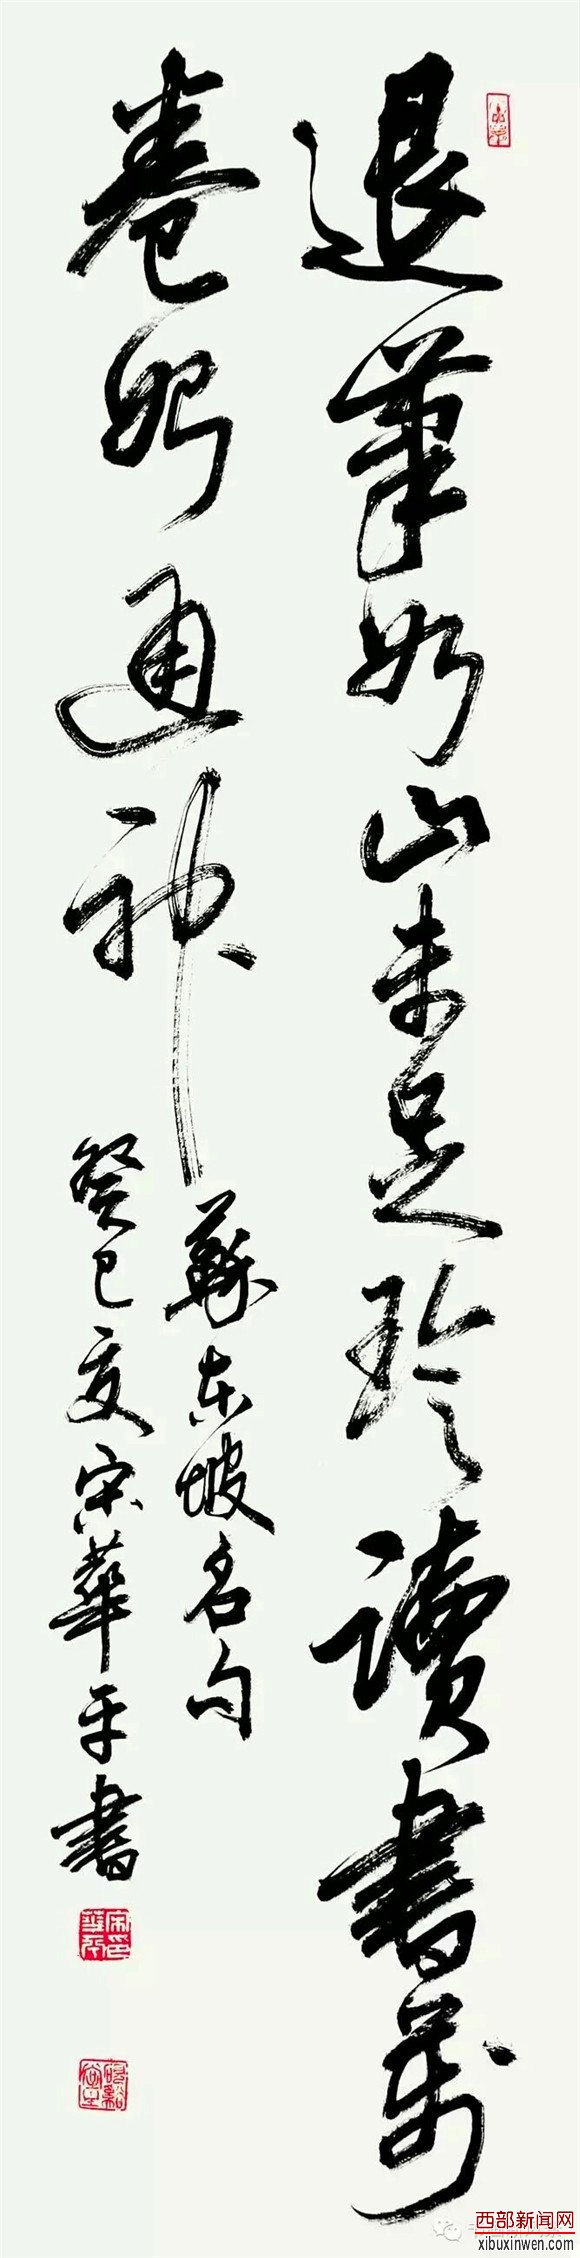 退筆如山未足珍讀書萬
卷始通神
蘇东坡名句
癸巳夏宋華平書
西部新闻网
xibuxinwen.com